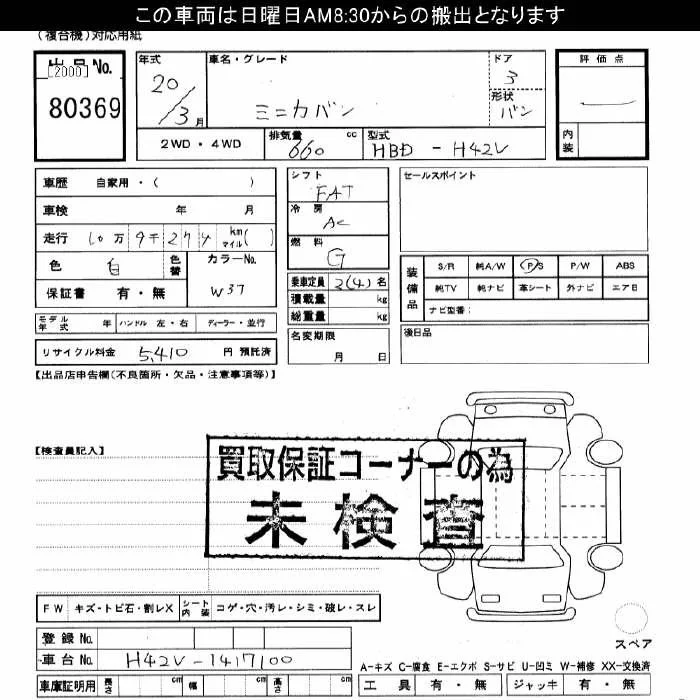 この車両は日曜日AM8:30からの搬出となります
(複合機)対応用紙
出品No.
[2000]
80369
年式
20/3月
車名・グレード
ミニカバン
ドア
3
形状
バン
評価点
内装
2WD・4WD
排気量
660 cc
型式
HBD - H42V
車歴 自家用・( )
車検 年 月
走行 10万9千274 km マイル( )
色 白
色替
カラーNo.
W37
保証書 有・無
モデル年式 年 ハンドル 左・右 ディーラー・並行
リサイクル料金 5,410 円 預託済
シフト
FAT
冷房
AC
燃料
G
乗車定員 2(4) 名
積載量 kg
総重量 kg
名変期限
月 日
セールスポイント
装備品
S/R 純A/W P/S P/W ABS
純TV 純ナビ 革シート 外ナビ エアB
ナビ型番:
後日品
【出品店申告欄(不良箇所・欠品・注意事項等)】
【検査員記入】
買取保証コーナーの為
未検査
FW キズ・トビ石・割レX シート内装 コゲ・穴・汚レ・シミ・破レ・スレ
登録No.
車台No. H42V-1417100
車庫証明用 長さ cm 幅 cm 高さ cm
スペア
A-キズ C-腐食 E-エクボ S-サビ U-凹ミ W-補修 XX-交換済
工具 有・無 ジャッキ 有・無